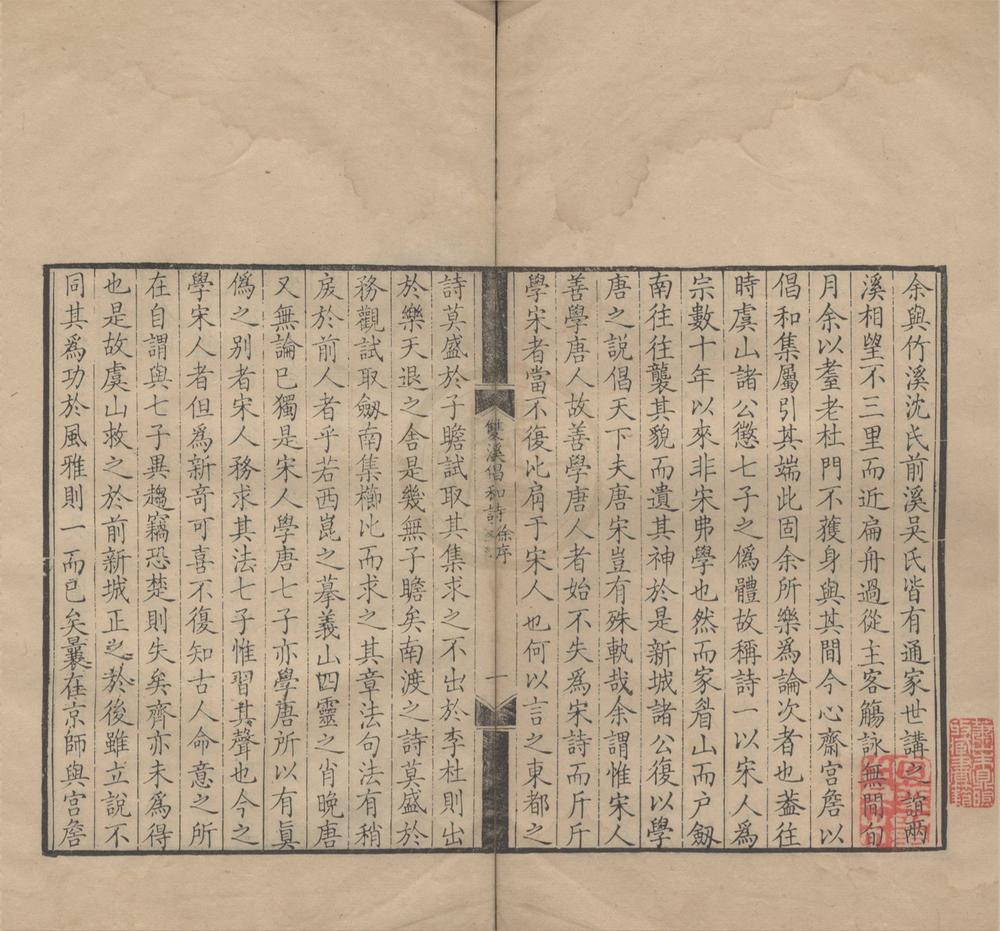 余與竹溪沈氏前溪吳氏皆有通家世講之誼兩
溪相望不三里而近扁舟過從主客觴詠無閒旬
月余以耋老杜門不獲身與其間今心齋宮詹以
倡和集屬引其端此固余所樂為論次者也葢往
時虞山諸公懲七子之偽體故稱詩一以宋人為
宗數十年以來非宋弗學也然而家眉山而户劔
南往往襲其貌而遺其神於是新城諸公復以學
唐之說倡天下夫唐宋豈有殊軌哉余謂惟宋人
善學唐人故善學唐人者始不失為宋詩而斤斤
學宋者當不復比肩于宋人也何以言之東都之
雙溪倡和詩 徐序 一
詩莫盛於子瞻試取其集求之不出於李杜則出
於樂天退之舍是幾無子瞻矣南渡之詩莫盛於
務觀試取劔南集櫛比而求之其章法句法有稍
戾於前人者乎若西崑之摹義山四靈之肖晚唐
又無論已獨是宋人學唐七子亦學唐所以有眞
偽之别者宋人務求其法七子惟習其聲也今之
學宋人者但為新奇可喜不復知古人命意之所
在自謂與七子異趨竊恐楚則失矣齊亦未為得
也是故虞山救之於前新城正之於後雖立說不
同其為功於風雅則一而已矣曩在京師與宮詹